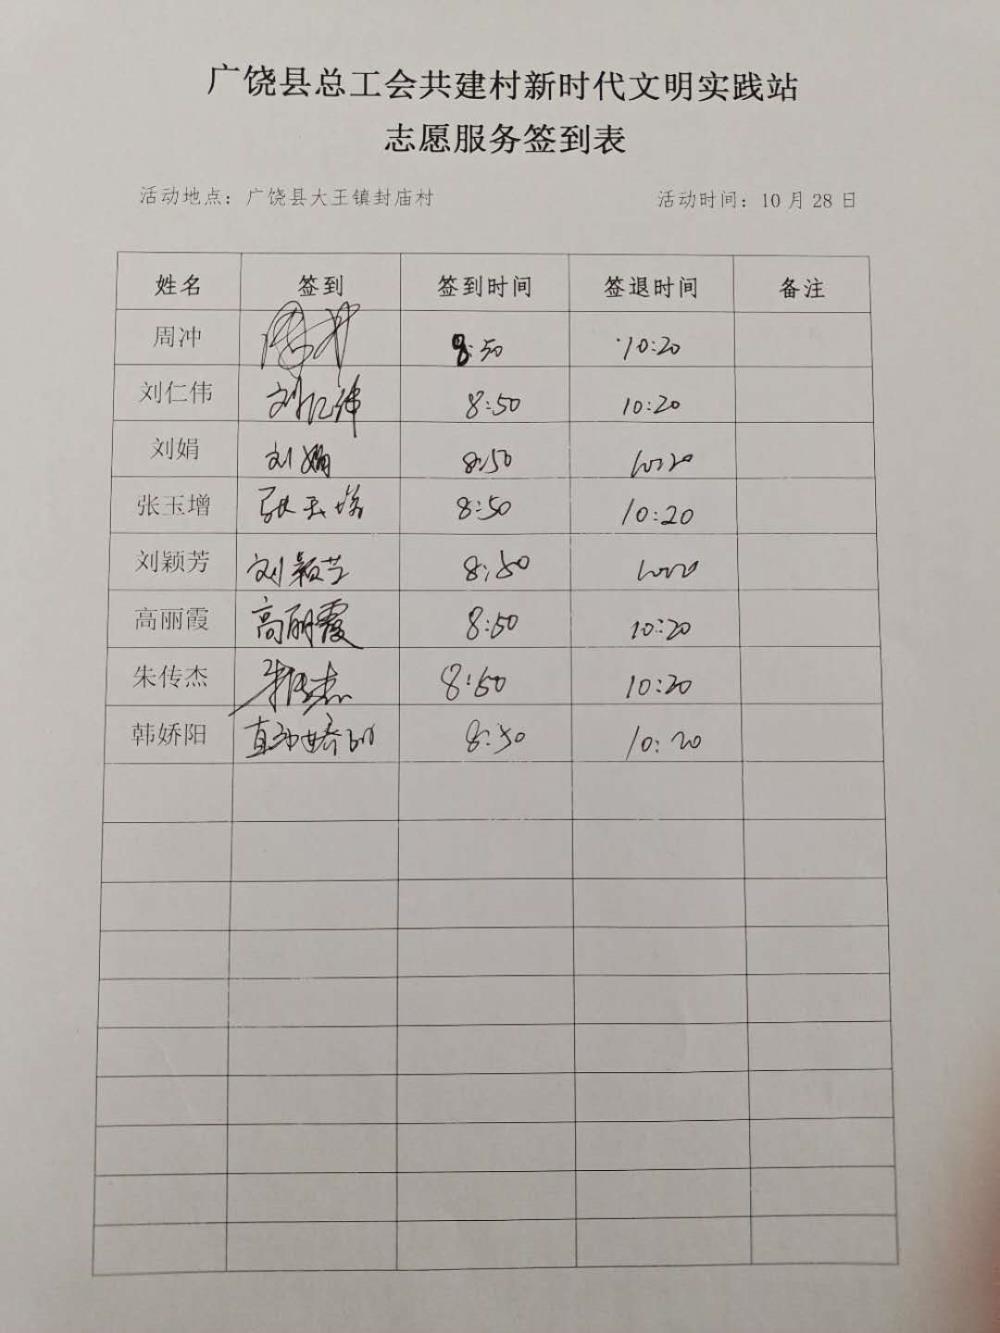 广饶县总工会共建村新时代文明实践站
志愿服务签到表
活动地点：广饶县大王镇封庙村 活动时间：10月28日
姓名 签到 签到时间 签退时间 备注
周冲 周冲 8:50 10:20
刘仁伟 刘仁伟 8:50 10:20
刘娟 刘娟 8:50 10:20
张玉增 张玉增 8:50 10:20
刘颖芳 刘颖芳 8:50 10:20
高丽霞 高丽霞 8:50 10:20
朱传杰 朱传杰 8:50 10:20
韩娇阳 韩娇阳 8:50 10:20